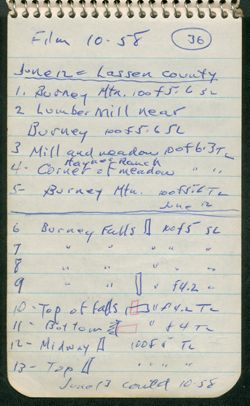 Film 10-58
36
June 12 = Lassen County
1. Burney Mtn. 100 f 5.6 SL
2 Lumber Mill near
Burney 100 f 5.6 SL
3 Mill and meadow 100 f 6.3 TL
Haynes Ranch
4- Corner of meadow " " "
5- Burney Mtn. 100 f 5.6 TL
June 12
6 Burney Falls 100 f 5 SL
7 " " " " "
8 " " " " "
9 " " " f 4.2 "
10- Top of falls " f 4.2 TL
11- Bottom " f 4 TL
12- Midway 100 f 5 TL
13- Top " " "
June 13 could 10-58